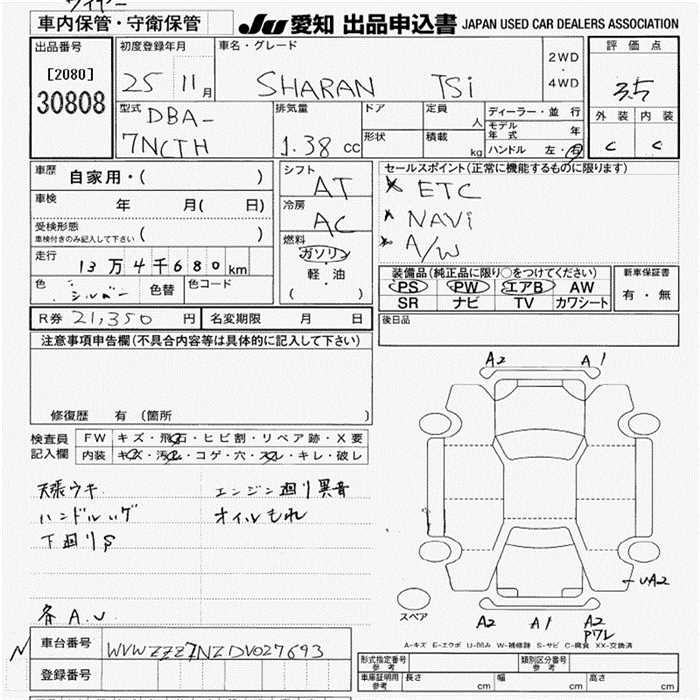 車内保管・守衛保管
JU 愛知 出品申込書 JAPAN USED CAR DEALERS ASSOCIATION
出品番号
[2080]
30808
初度登録年月
25 11月
車名・グレード
SHARAN TSi
2WD
・
4WD
評価点
3.5
外装 内装
C C
型式
DBA-
7NCTH
排気量
1.38 cc
ドア
定員
人
形状
積載
kg
ディーラー・並行
モデル年式 年
ハンドル 左・右
車歴
自家用・( )
車検
年 月( 日)
受検形態
車検付きのみ記入して下さい ( )
走行
13万4千680km
色
シルバー
色替
色コード
シフト
AT
冷房
AC
燃料
ガソリン
・
軽・油
( )
セールスポイント(正常に機能するものに限ります)
ETC
NAVi
A/W
装備品(純正品に限り○をつけてください)
PS PW エアB AW
SR ナビ TV カワシート
新車保証書
有・無
R券 21,350 円
名変期限 月 日
後日品
注意事項申告欄(不具合内容等は具体的に記入して下さい)
修復歴 有(箇所 )
検査員
記入欄
FW キズ・飛石・ヒビ割・リペア跡・X要
内装 キズ・汚れ・コゲ・穴・スレ・キレ・破レ
天張ウキ
ハンドルハゲ
下廻りS
エンジン廻り異音
オイルもれ
各A.U
A2 A1
UA2
スペア
A2 A1 A2
Pワレ
A-キズ E-エクボ U-凹み W-補修跡 S-サビ C-腐食 XX-交換済
車台番号
WVWZZZ7NZDV027693
登録番号
形式指定番号
参考
類別区分番号
参考
車庫証明用
参考
長さ cm 幅 cm 高さ cm